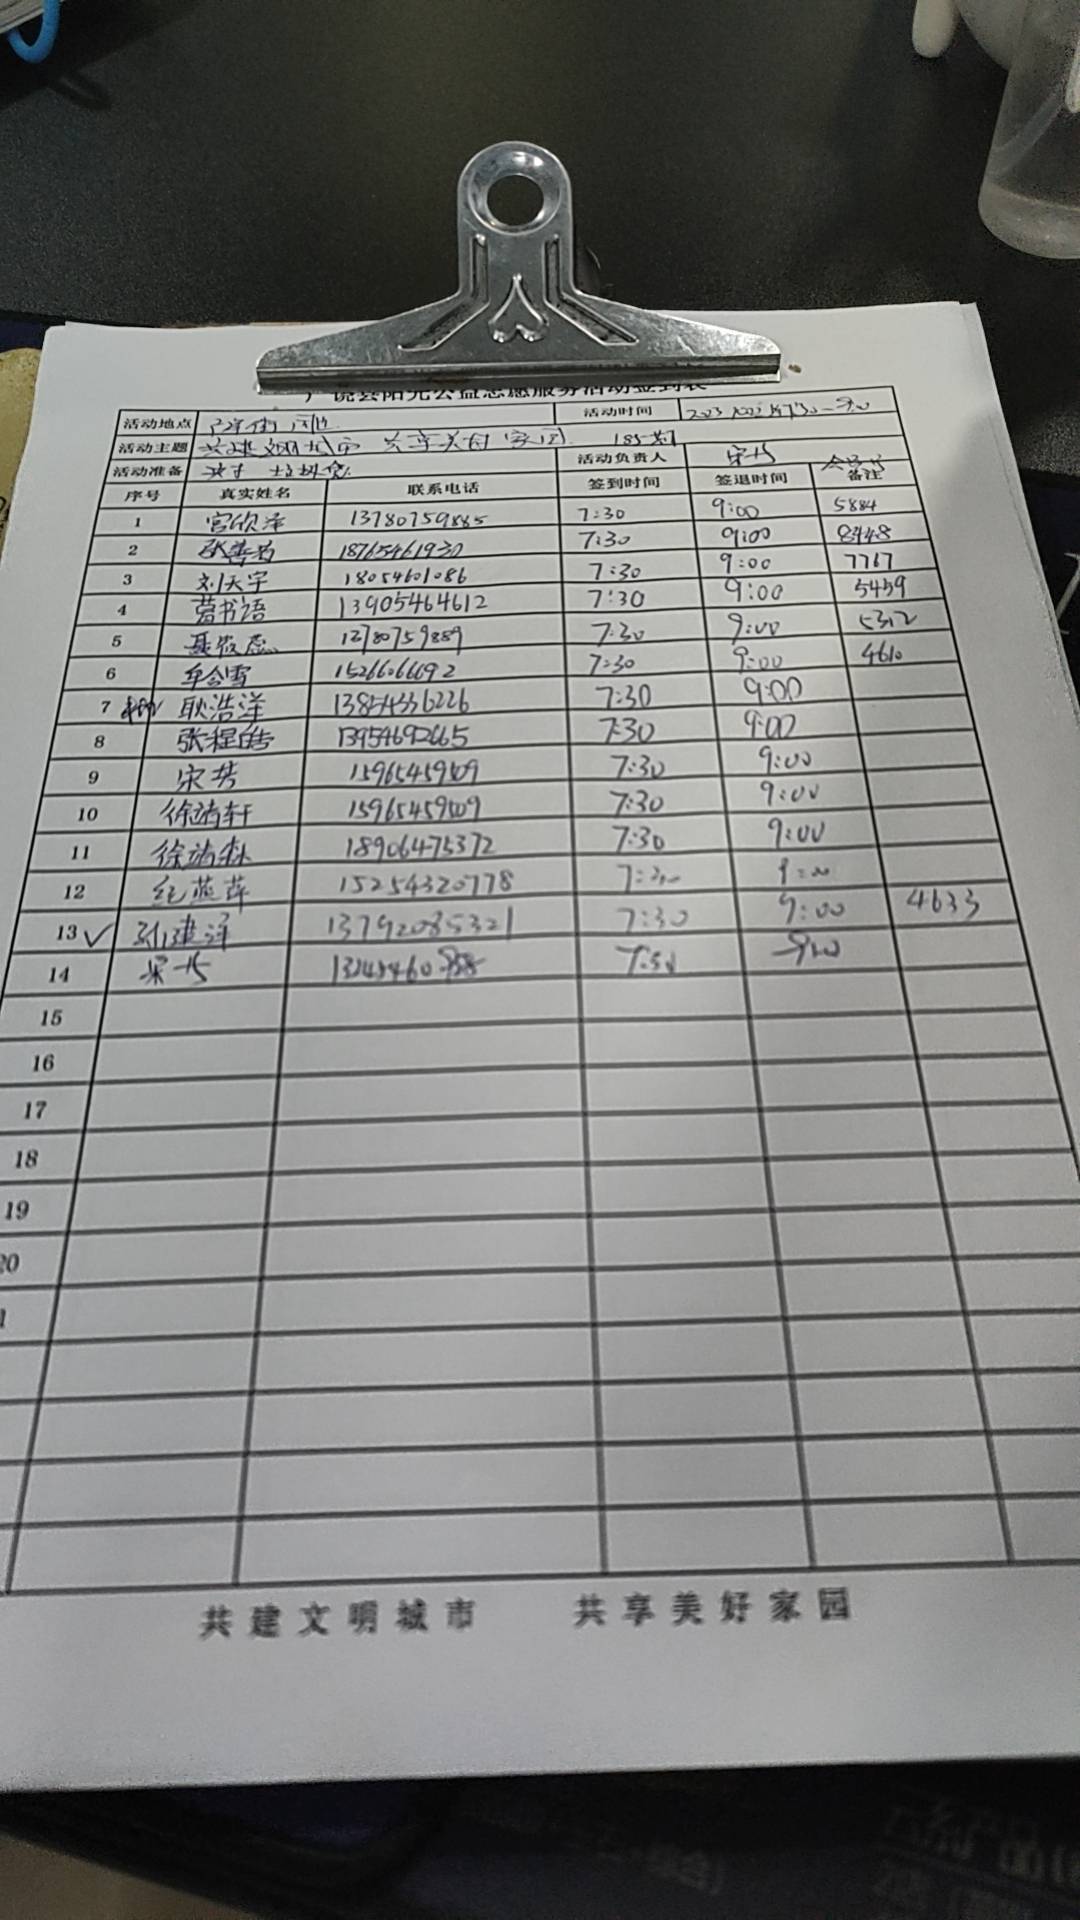 广饶县阳光公益志愿服务活动签到表
活动地点 周边 活动时间
活动主题 共建文明城市 共享美好家园 185期
活动准备 垃圾袋 活动负责人
序号 真实姓名 联系电话 签到时间 签退时间 备注
1 宫欣泽 13780759885 7:30 9:00 5884
2 18765461930 7:30 9:00 8448
3 刘天宇 18054601086 7:30 9:00 7767
4 书语 13905464612 7:30 9:00 5459
5 13780759889 7:30 9:00 5312
6 15266066692 7:30 9:00 4610
7 耿浩洋 13854336226 7:30 9:00
8 张程皓 13954692665 7:30 9:00
9 宋芳 15965459509 7:30 9:00
10 徐靖轩 15965459509 7:30 9:00
11 徐靖森 18906475372 7:30 9:00
12 纪燕萍 15254320778 7:30 9:00
13 ✓ 孙建洋 13792085321 7:30 9:00 4633
14
15
16
17
18
19
20
共建文明城市 共享美好家园